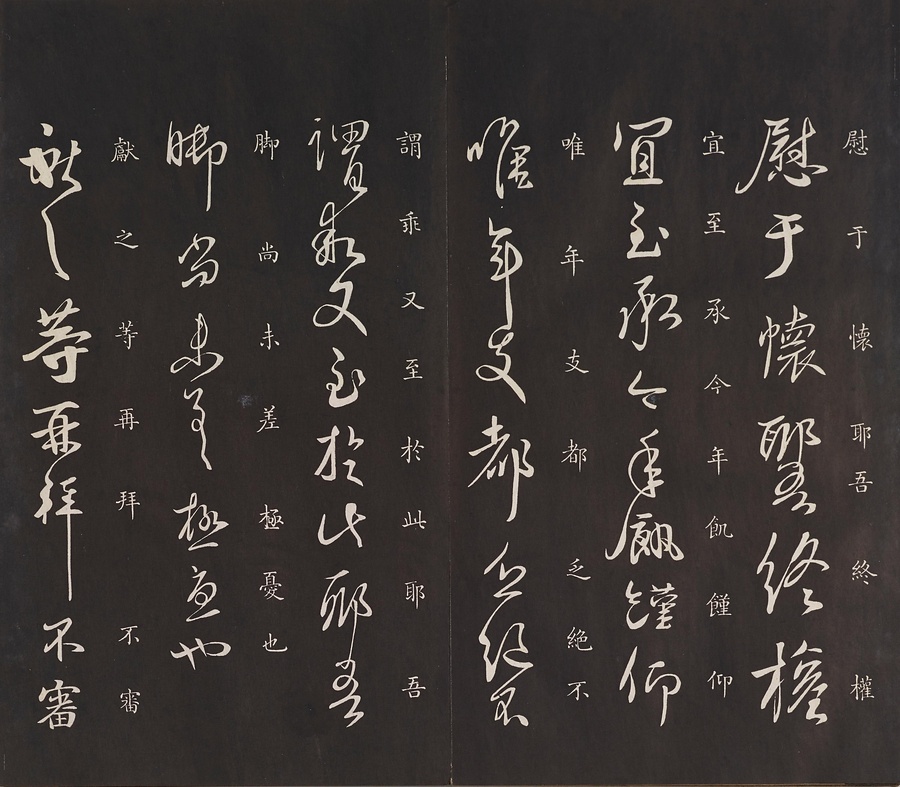 慰于懷耶吾終權
慰于懷耶吾終權
宜至承今年飢饉仰
宜至承今年飢饉仰
唯年支都乏絕不
唯年支都乏絕不
謂乖又至於此耶吾
謂乖又至於此耶吾
脚尚未差極憂也
脚尚未差極憂也
獻之等再拜不審
獻之等再拜不審